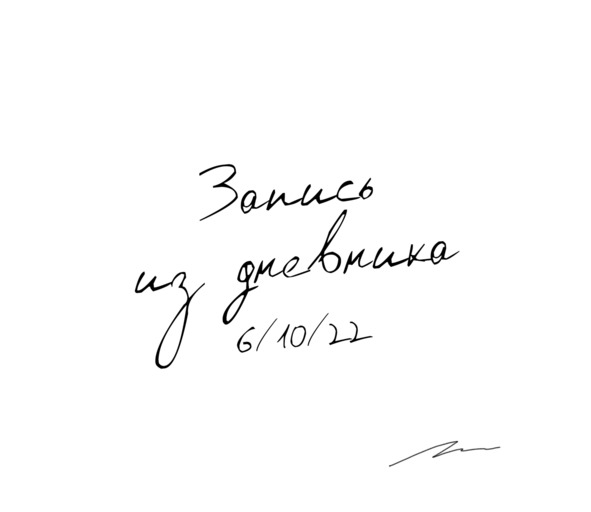 Запись
из дневника
6/10/22